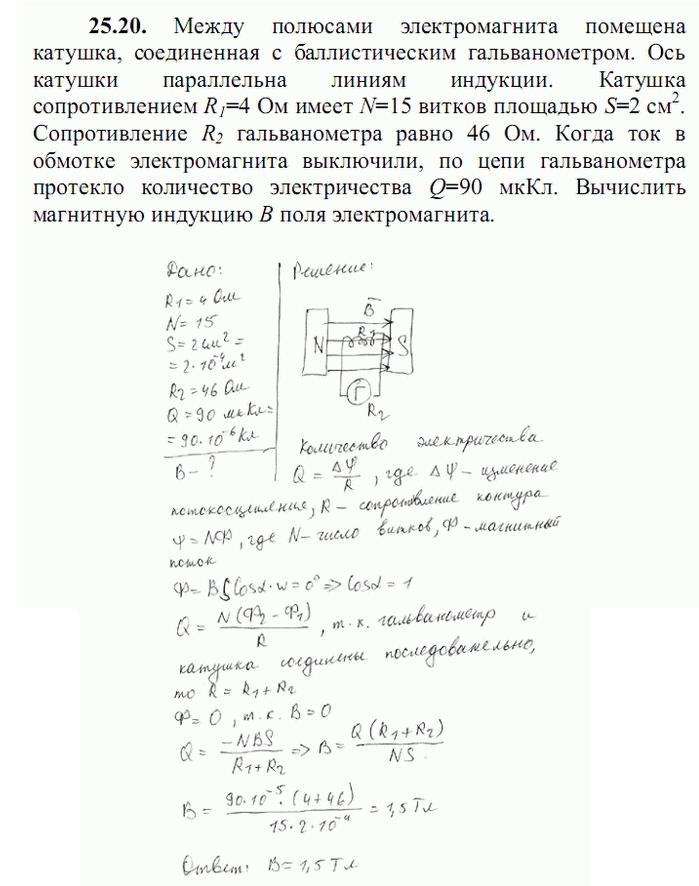 25.20. Между полюсами электромагнита помещена
катушка, соединенная с баллистическим гальванометром. Ось
катушки параллельна линиям индукции. Катушка
сопротивлением R₁=4 Ом имеет N=15 витков площадью S=2 см².
Сопротивление R₂ гальванометра равно 46 Ом. Когда ток в
обмотке электромагнита выключили, по цепи гальванометра
протекло количество электричества Q=90 мкКл. Вычислить
магнитную индукцию B поля электромагнита.
Дано:
R₁ = 4 Ом
N = 15
S = 2 см² =
= 2·10⁻⁴ м²
R₂ = 46 Ом
Q = 90 мкКл =
= 90·10⁻⁶ Кл
B – ?
Решение:
B
R₁
N S
Г
R₂
Количество электричества
Q = Δψ/R, где Δψ – изменение
потокосцепления, R – сопротивление контура
ψ = NФ, где N – число витков, Ф – магнитный
поток
Ф = BS cosα · w = 0° => cosα = 1
Q = N(Ф₂ – Ф₁)/R, т.к. гальванометр и
катушка соединены последовательно,
то R = R₁ + R₂
Ф = 0, т.к. B = 0
Q = –NBS/(R₁ + R₂) => B = Q(R₁ + R₂)/NS.
B = 90·10⁻⁵·(4+46)/15·2·10⁻⁴ = 1,5 Тл
Ответ: B = 1,5 Тл